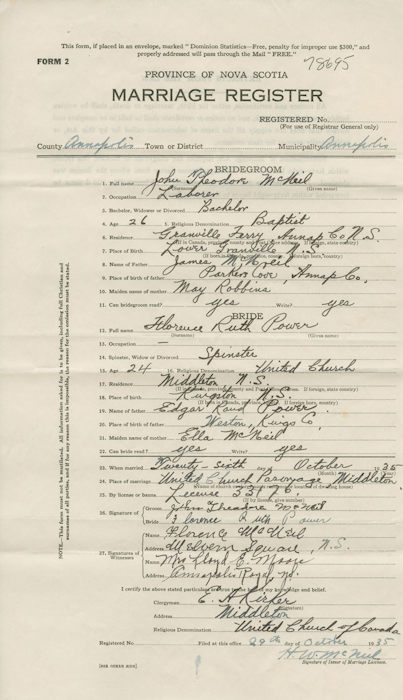 This form, if placed in an envelope, marked "Dominion Statistics—Free, penalty for improper use $300," and
properly addressed will pass through the Mail "FREE."
FORM 2
78695
PROVINCE OF NOVA SCOTIA
MARRIAGE REGISTER
REGISTERED No.
(For use of Registrar General only)
County Annapolis Town or District Municipality Annapolis
BRIDEGROOM
1. Full name John Theodore McNeil
(Surname) (Given name)
2. Occupation Laborer
3. Bachelor, Widower or Divorced Bachelor
4. Age 26 5. Religious Denomination Baptist
6. Residence Granville Ferry Annap Co N.S.
7. Place of Birth Lower Granville N.S.
8. Name of Father James McNeil
9. Place of birth of father Parkers Cove, Annap Co,
10. Maiden name of mother May Robbins
11. Can bridegroom read? yes Write? yes
BRIDE
12. Full name Florence Ruth Power
(Surname) (Given name)
13. Occupation —
14. Spinster, Widow or Divorced Spinster
15. Age 24 16. Religious Denomination United Church
17. Residence Middleton N.S.
18. Place of birth Kingston N.S.
19. Name of father Edgar Power
20. Place of birth of father Weston, Kings Co,
21. Maiden name of mother Ella McNeil
22. Can bride read? yes Write? yes
23. When married Twenty-sixth day of October 1935
24. Place of marriage United Church Parsonage, Middleton
25. By license or banns License 53976
(If by license, give number)
26. Signature of Groom John Theodore McNeil
Bride Florence Ruth Power
27. Signature of Witnesses
Name Florence McNeil
Address Melvern Square, N.S.
Name Mrs Lloyd E. Moore
Address Annapolis Royal, N.S.
I certify the above stated particulars are true to the best of my knowledge and belief.
Clergyman E. A. Kirker
(Signature)
Address Middleton
Religious Denomination United Church of Canada
Registered No. Filed at this office 29th day of October 1935
H W. McNeil
Signature of Issuer of Marriage Licenses.
[SEE OTHER SIDE]
NOTE.—This form must not be mutilated. All information asked for is to be given, including full Christian and
surnames of all parties, and if for any reason this is impossible, the reason for the omission must be stated.